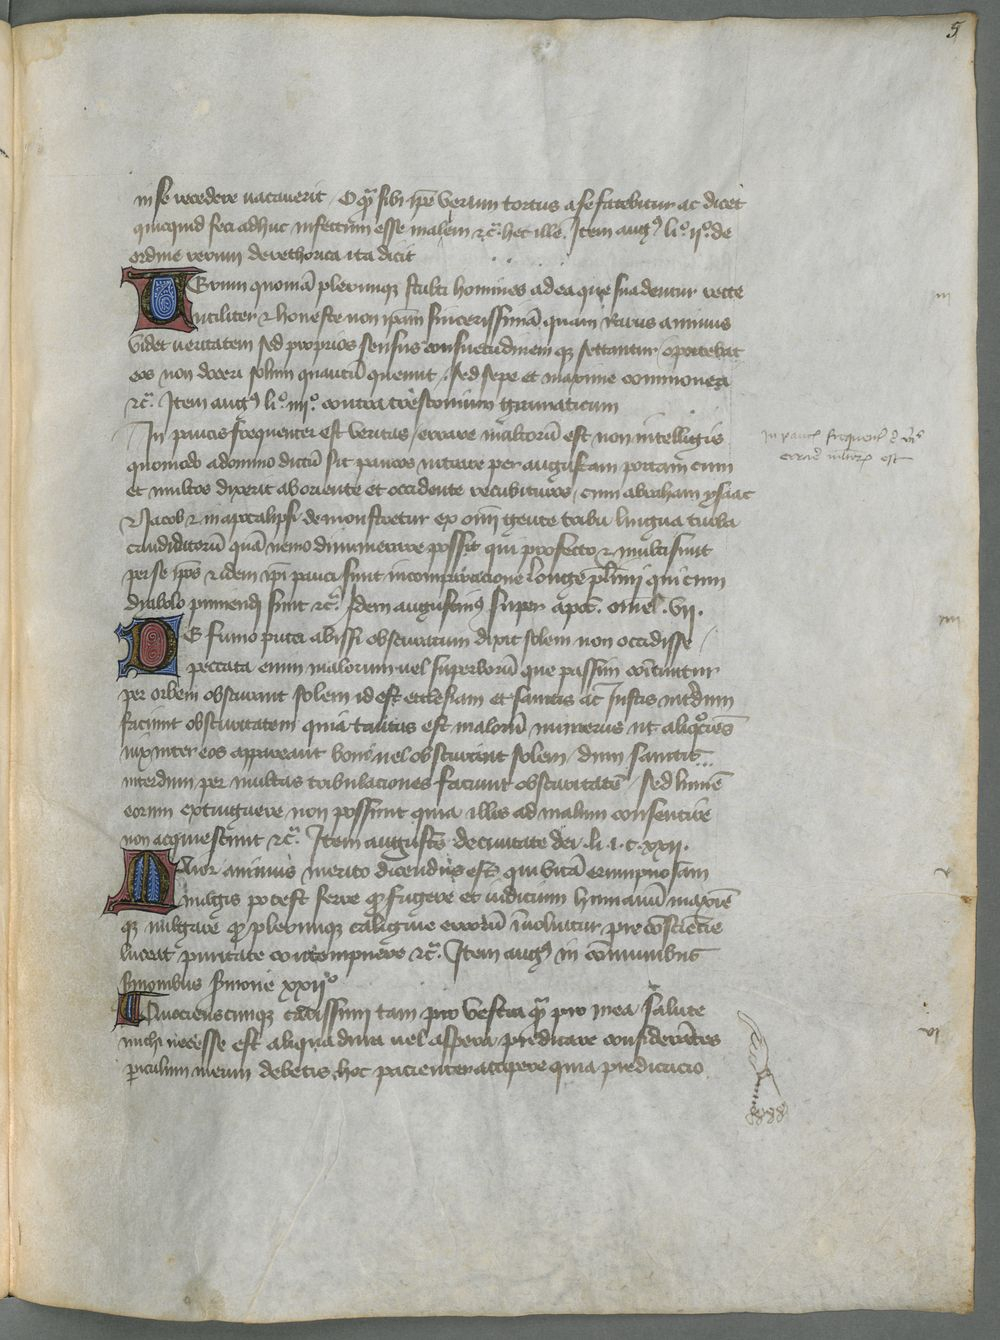 5
in se recedere vacaverit O qͣ sibi ip̄e verum tortus a se fatebitur ac dicet
quicquid feci adhuc infectum esse malem ⁊cͣ. hec ille. Item augꝰ li.º ijº. de
ordine rerum de rethorica ita dicit
VErum quoniā plerumqꝫ stulti homines ad ea que suadentur recte
utiliter ⁊ honeste non ip̄am sincerissimā quam rarus animus
videt veritatem sed proprios sensus consuetudinem qꝫ sectantur oportebat
eos non doceri solum quantū queunt. sed sepe et maxime commoneri
⁊cͣ. Item augꝰ li.º iijº. contra cresconium gramaticum
In paucis frequenter est veritas errare multorū est non intelligis
quomodo a domino dictū sit paucos intrare per angustam portam cum
et multos dixerit ab oriente et occidente recubituros cum abraham ysaac
⁊ Jacob ⁊ in apocalipsi demonstretur ex om̄i gente tribu lingua turba
candidatorū quā nemo dinumerare possit qui profecto ⁊ multi sunt
per se ip̄os ⁊ idem ip̄i pauci sunt in comparacione longe pl̄imi qui cum
dyabolo puniendi sunt ⁊cͣ. Idem augustinꝰ super apoc̄. omel. vii.
DE fumo putei abissi obscuratum dixit solem non occidisse
peccata enim malorum vel superborū que passim com̄ittuntur
per orbem obscurant solem id est ecclesiam et sanctis ac iustis int̄dum
faciunt obscuritatem quia tantus est malorū numerus ut aliqͦciēs
vix inter eos appareant boni vel obscurant solem dum sanctis
interdum per multas tribulaciones faciunt obscuritatē Sed lumē
eorum extinguere non possunt quia illos ad malum consentire
non acquiescunt ⁊cͣ. Item augustꝰ de civitate dei. li. i. c. xxii.
MAior animus merito dicendus est qui vitā erumpnosam
magis potest ferre qͣ fugere et iudicium humanū maxīe
qꝫ vulgare qͦ plerumqꝫ caligine errorū īvolvitur pre cōsciēcie
lucē ac puritate contempnere ⁊cͣ. Item augꝰ in cōmunibus
s̄monibus s̄mone xxiiº
QUocienscumqꝫ carissimi tam pro vestra qͣ pro mea salute
michi necesse est aliqua dura vel aspera predicare considerātes
periculum meum debetis hoc pacienter accipere quia predicacio
iii
In paucis frequent̄ ē v̄tꝰ
errare multorꝫ est
iiii
v
vi